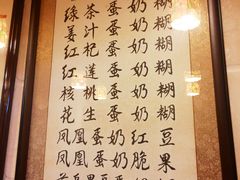 绿茶蛋奶糊
姜汁蛋奶糊
红杞蛋奶糊
红莲蛋奶糊
核桃蛋奶糊
花生蛋奶糊
凤凰蛋奶红豆
凤凰蛋奶脆果